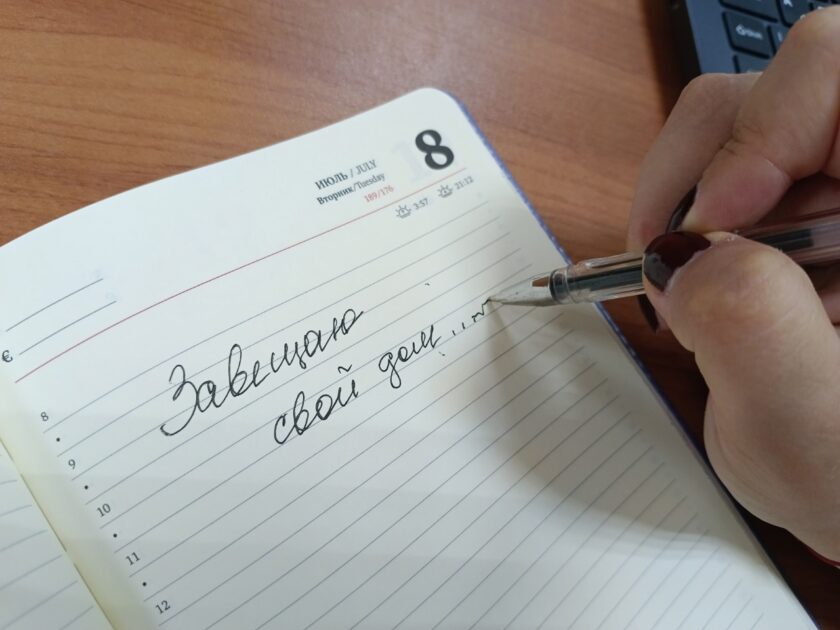 8
ИЮЛЬ / JULY
Вторник/Tuesday
189/176
3:57 21:12
€
Завещаю
свой дом...
8
9
10
11
12